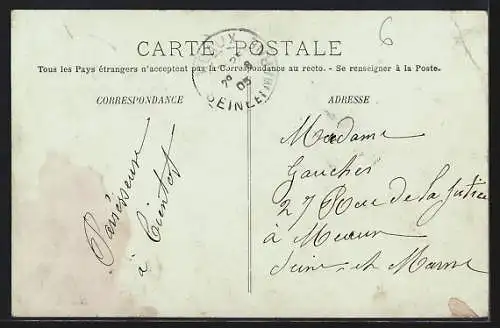 6
CARTE POSTALE
Tous les Pays étrangers n'acceptent pas la Correspondance au recto. - Se renseigner à la Poste.
CORRESPONDANCE
ADRESSE
Paresseuse
à bientot
Madame
Gaucher
27 Rue de la Justice
à Meaux
Seine et Marne